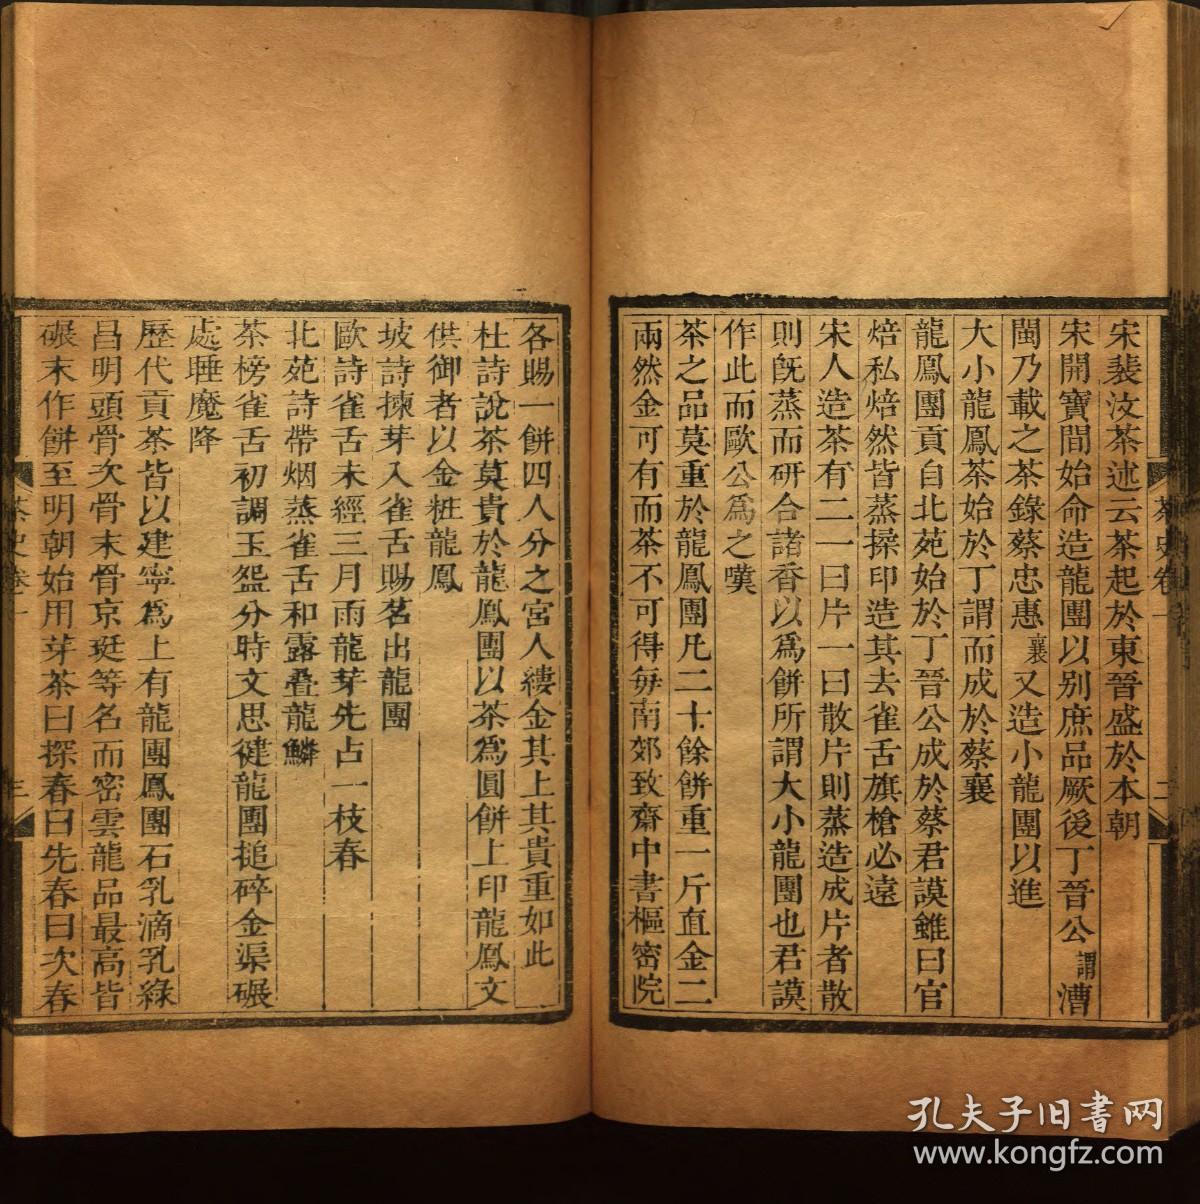 宋裴汶茶述云茶起於東晉盛於本朝
宋開寶間始命造龍團以别庶品厥後丁晉公謂漕
閩乃載之茶錄蔡忠惠襄又造小龍團以進
大小龍鳳茶始於丁謂而成於蔡襄
龍鳳團貢自北苑始於丁晉公成於蔡君謨雖曰官
焙私焙然皆蒸操印造其去雀舌旗槍必遠
宋人造茶有二一曰片一曰散片則蒸造成片者散
則旣蒸而研合諸香以爲餅所謂大小龍團也君謨
作此而歐公爲之嘆
茶之品莫重於龍鳳團凡二十餘餅重一斤直金二
兩然金可有而茶不可得每南郊致齋中書樞密院
各賜一餅四人分之宮人縷金其上其貴重如此
杜詩說茶莫貴於龍鳳團以茶爲圓餅上印龍鳳文
供御者以金粧龍鳳
坡詩揀芽入雀舌賜茗出龍團
歐詩雀舌未經三月雨龍芽先占一枝春
北苑詩帶烟蒸雀舌和露叠龍鱗
茶榜雀舌初調玉盌分時文思健龍團搥碎金渠碾
處睡魔降
歷代貢茶皆以建寧爲上有龍團鳳團石乳滴乳綠
昌明頭骨次骨末骨京珽等名而密雲龍品最高皆
碾末作餅至明朝始用芽茶曰探春曰先春曰次春
茶史卷一
三
茶史卷一
二
孔夫子旧書网
www.kongfz.com